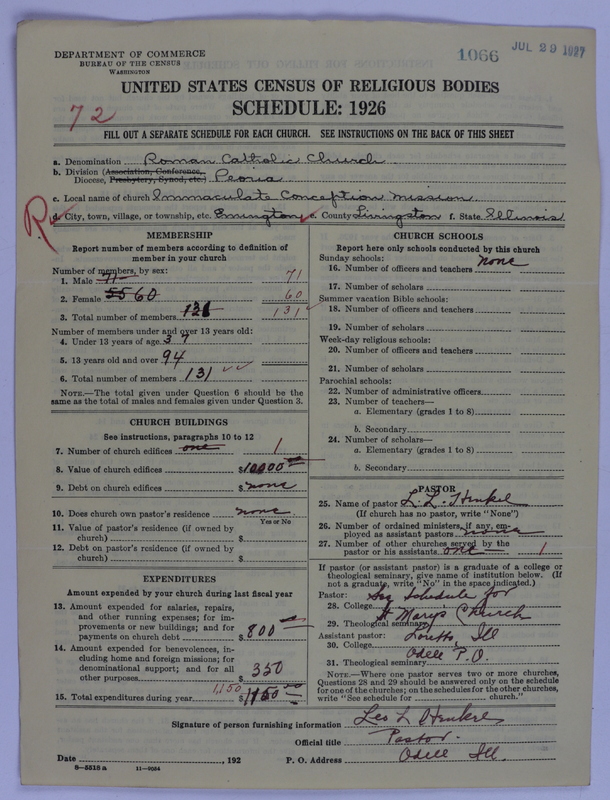 DEPARTMENT OF COMMERCE
BUREAU OF THE CENSUS
WASHINGTON
1066
JUL 29 1927
UNITED STATES CENSUS OF RELIGIOUS BODIES
SCHEDULE: 1926
72
FILL OUT A SEPARATE SCHEDULE FOR EACH CHURCH. SEE INSTRUCTIONS ON THE BACK OF THIS SHEET
a. Denomination Roman Catholic Church
b. Division (Association, Conference, Diocese, Presbytery, Synod, etc.) Peoria
c. Local name of church Immaculate Conception Mission
R
d. City, town, village, or township, etc. Emington e. County Livingston f. State Illinois
MEMBERSHIP
Report number of members according to definition of
member in your church
Number of members, by sex:
1. Male 71 71
2. Female 55 60 60
3. Total number of members 131
Number of members under and over 13 years old:
4. Under 13 years of age 37
5. 13 years old and over 94
6. Total number of members 131
NOTE.—The total given under Question 6 should be
same as the total of males and females given under Question 3.
CHURCH BUILDINGS
See instructions, paragraphs 10 to 12
7. Number of church edifices one 1
8. Value of church edifices $10000
9. Debt on church edifices $ none
10. Does church own pastor's residence none
Yes or No
11. Value of pastor's residence (if owned by
church) $
12. Debt on pastor's residence (if owned by
church) $
EXPENDITURES
Amount expended by your church during last fiscal year
13. Amount expended for salaries, repairs,
and other running expenses; for im-
provements or new buildings; and for
payments on church debt $ 800
14. Amount expended for benevolences, in-
cluding home and foreign missions; for
denominational support; and for all
other purposes $ 350
15. Total expenditures during year 1,150 $1150
CHURCH SCHOOLS
Report here only schools conducted by this church
Sunday schools: none
16. Number of officers and teachers
17. Number of scholars
Summer vacation Bible schools:
18. Number of officers and teachers
19. Number of scholars
Week-day religious schools:
20. Number of officers and teachers
21. Number of scholars
Parochial schools:
22. Number of administrative officers
23. Number of teachers—
a. Elementary (grades 1 to 8)
b. Secondary
24. Number of scholars—
a. Elementary (grades 1 to 8)
b. Secondary
PASTOR
25. Name of pastor L. L. Henkel
(If church has no pastor, write "None")
26. Number of ordained ministers, if any, em-
ployed as assistant pastors none
27. Number of other churches served by the
pastor or his assistants one 1
If pastor (or assistant pastor) is a graduate of a college or
theological seminary, give name of institution below. (If
not a graduate, write "No" in the space indicated.)
Pastor: See Schedule for
28. College
St Mary's Church
29. Theological seminary
Assistant pastor: Loretto, Ill
30. College
Odell P.O.
31. Theological seminary
NOTE.—Where one pastor serves two or more churches,
Questions 28 and 29 should be answered only on the schedule
for one of the churches; on the schedules for the other churches,
write "See schedule for church."
Signature of person furnishing information Leo L Henkel
Official title Pastor.
Date , 192 P. O. Address Odell Ill.
8—5518 a 11—9034